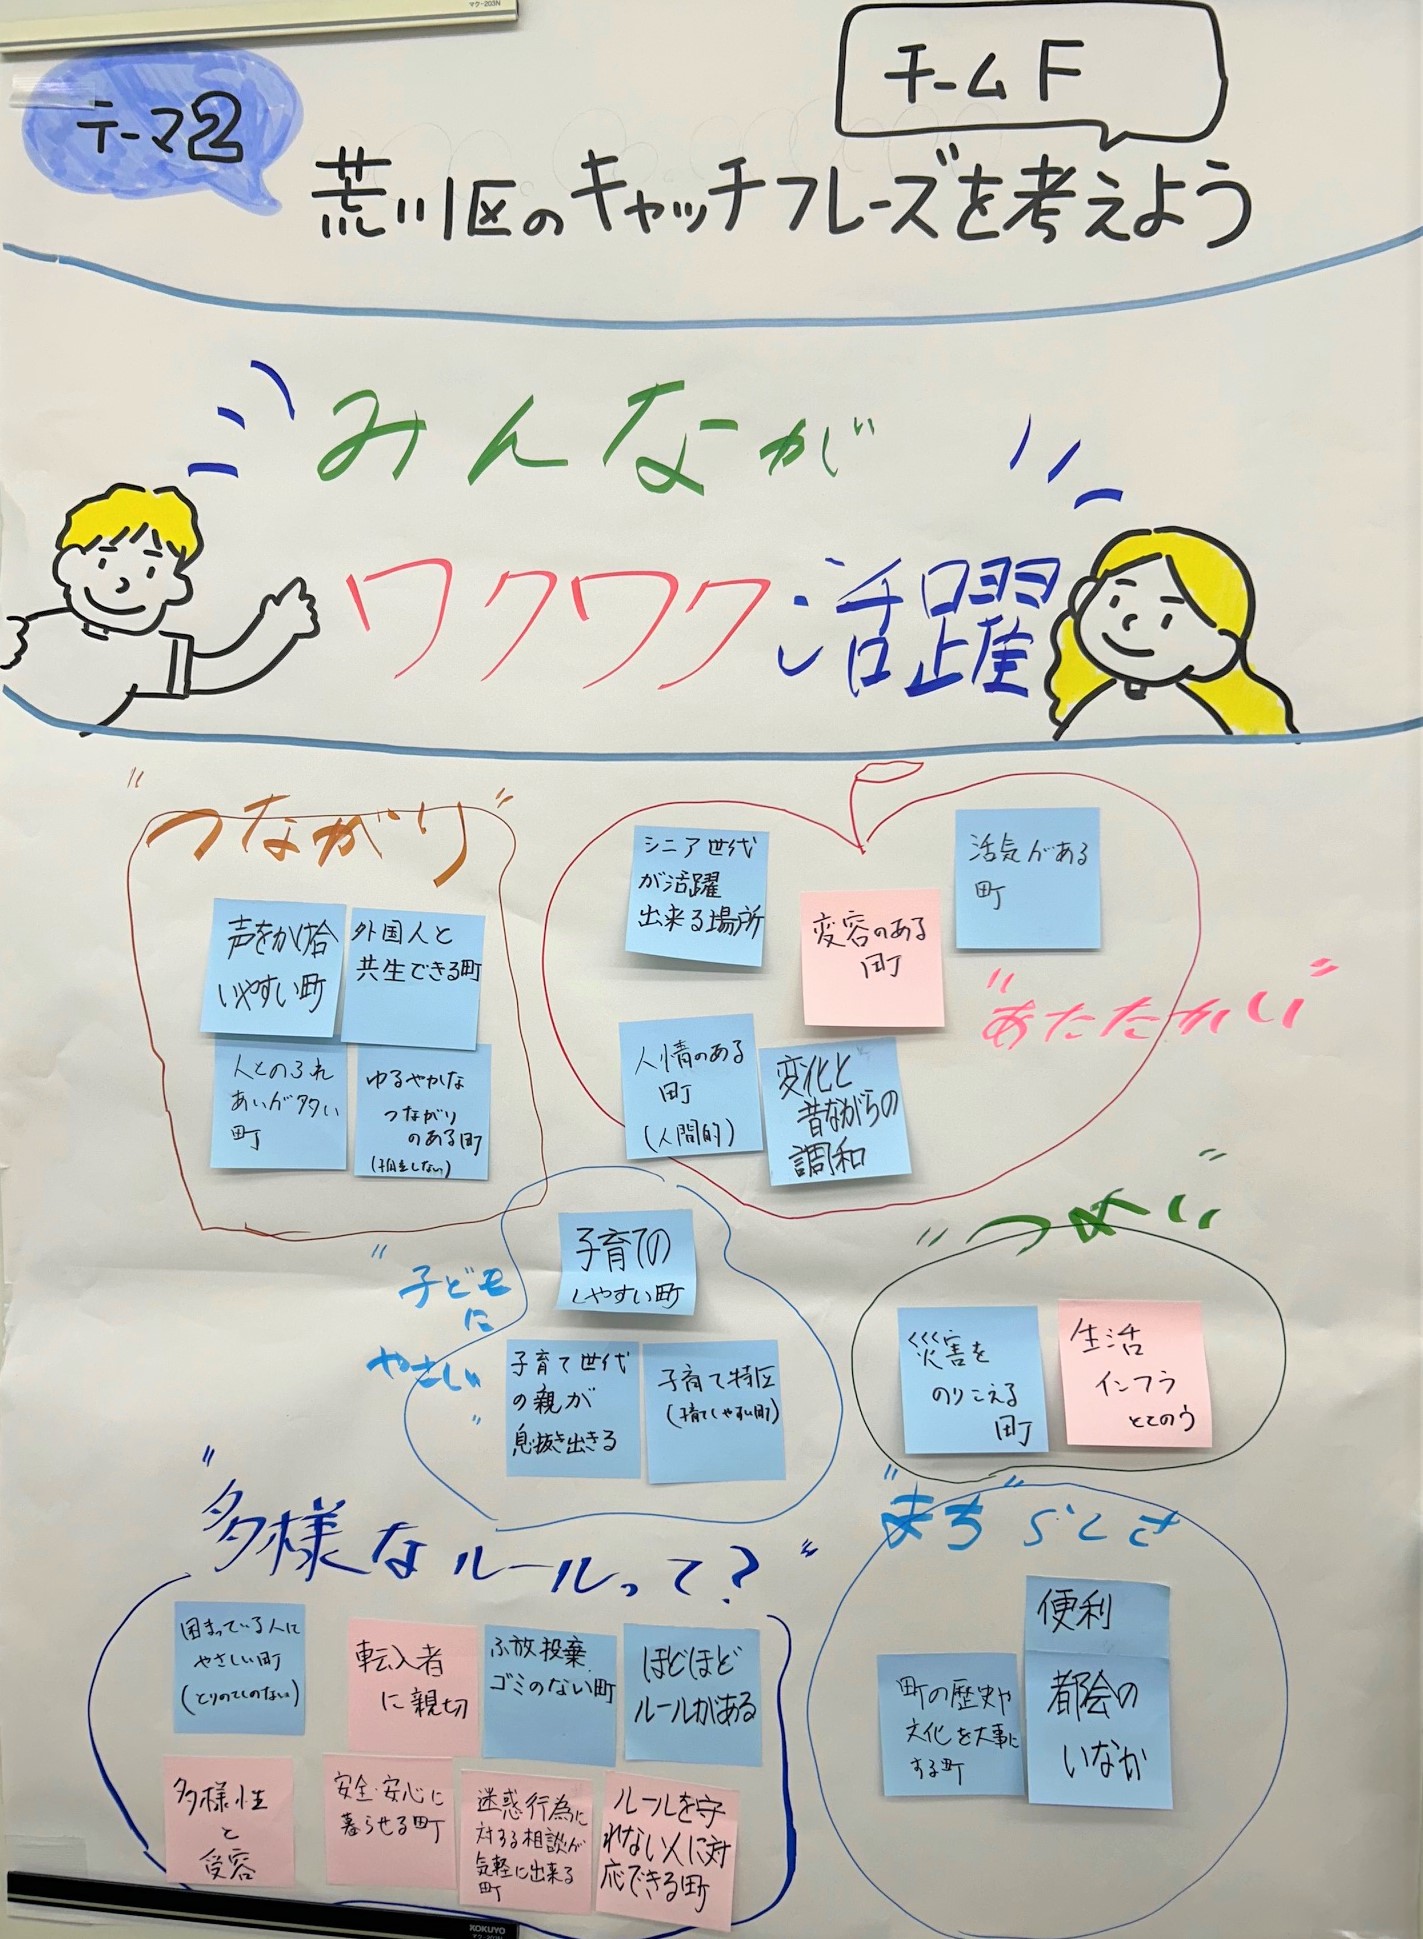 マク-203N
チームF
テーマ2
荒川区のキャッチフレーズを考えよう
みんなが
ワクワク活躍
"つながり"
声をかけ合
いやすい町
外国人と
共生できる町
人とのふれ
あいが多い
町
ゆるやかな
つながり
のある町
(孤立しない)
シニア世代
が活躍
出来る場所
変容のある
町
活気がある
町
"あたたかい"
人情のある
町
(人間的)
変化と
昔ながらの
調和
"子どもに
やさしい"
子育ての
しやすい町
子育て世代
の親が
息抜き出きる
子育て特区
(子育てしやすい町)
"つめい"
災害を
のりこえる
町
生活
インフラ
ととのう
"多様なルールって?"
困まっている人に
やさしい町
(とりのこしのない)
転入者
に親切
ふ放投棄
ゴミのない町
ほどほど
ルールがある
多様性
と
受容
安全・安心に
暮らせる町
迷惑行為に
対する相談が
気軽に出来る
町
ルールを守
れない人に対
応できる町
"まち"らしさ
便利
町の歴史や
文化を大事に
する町
都会の
いなか
KOKUYO
マク-203N